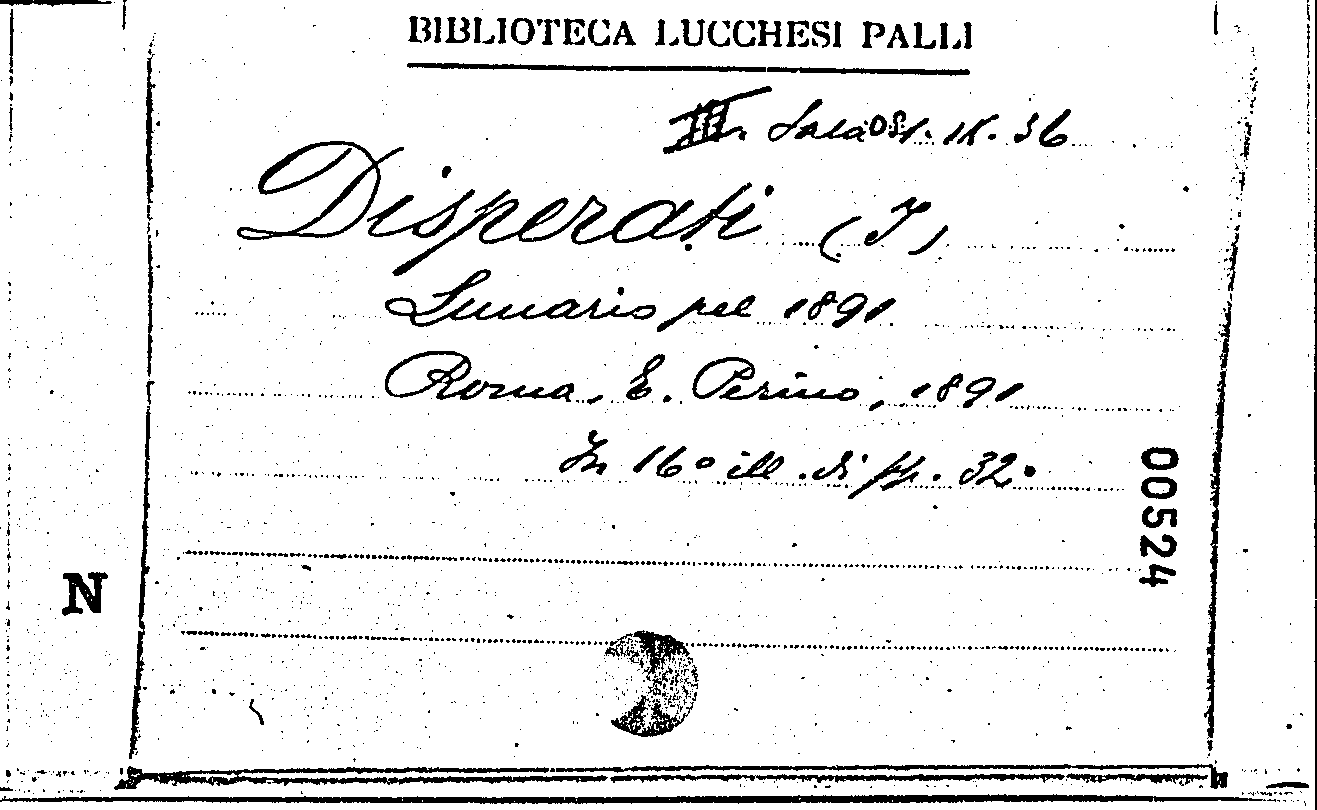 BIBLIOTECA LUCCHESI PALLI
III. Sala 1. IX. 36
Disperati (I)
Lunario pel 1891
Roma, E. Perino, 1891
In 16° ill. di pp. 32.
00524
N